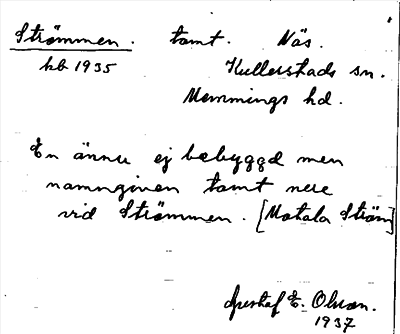 Strömmen. tomt. Näs.
kb 1935 Kullerstads sn.
Memmings hd.
En ännu ej bebyggd men
namngiven tomt nere
vid Strömmen. [Motala Ström]
Gustaf E. Olsson.
1937